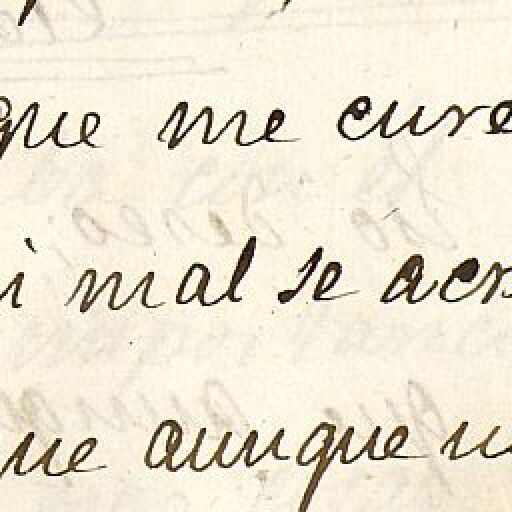 que me cure
i mal se acr
que aunque